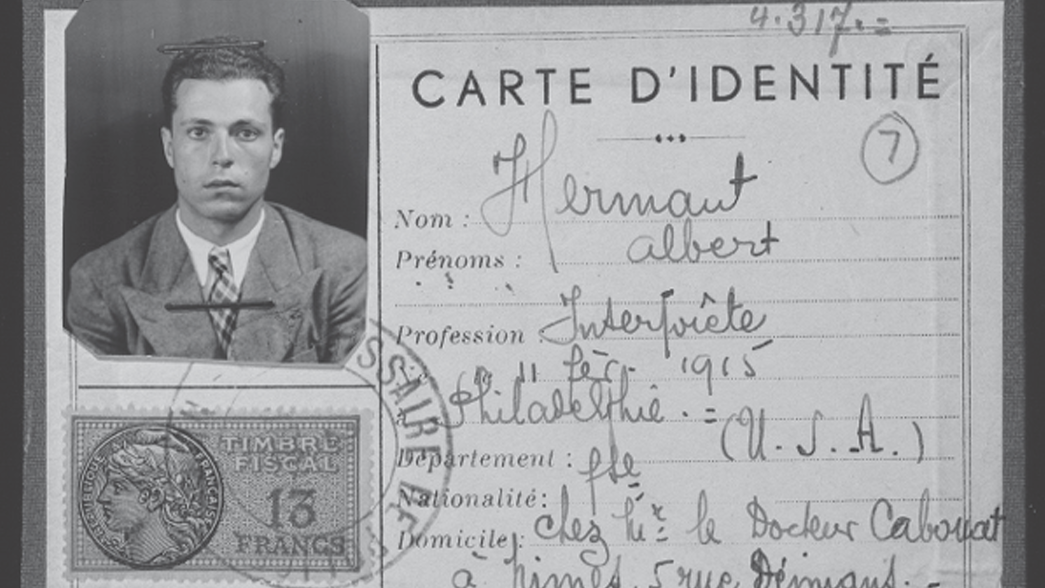 4.317.=
CARTE D'IDENTITÉ
7
Nom : Hermant
Prénoms : albert
Profession : Interprète
le 11 fév. 1915
à Philadelphie . = (U.S.A.)
Département :
Nationalité : fse
Domicile : chez Mr le Docteur Cabouat
à Nimes, 5 rue
TIMBRE
FISCAL
13
FRANCS
RÉPUBLIQUE FRANÇAISE